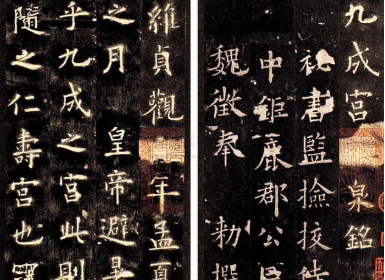 九成宮 泉銘
秘書監撿挍
中鉅鹿郡公
魏徵奉 勑撰
維貞觀 年孟夏
之月 皇帝避暑
乎九成之宮此則
隨之仁壽宮也